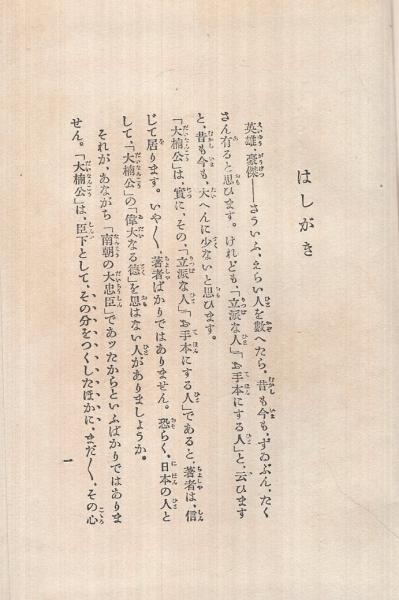 はしがき
英雄、豪傑――さういふ、えらい人を數へたら、昔も今も、ずゐぶん、たく
さん有ると思ひます。けれども、「立派な人」「お手本にする人」と、云ひます
と、昔も今も、大へんに少ないと思ひます。
「大楠公」は、實に、その、「立派な人」「お手本にする人」であると、著者は、信
じて居ります。いや〳〵、著者ばかりではありません。恐らく、日本の人と
して、「大楠公」の「偉大なる徳」を思はない人がありましようか。
それが、あながち「南朝の大忠臣」であッたからといふばかりではありま
せん。「大楠公」は、臣下として、その分をつくしたほかに、まだ〳〵、その心
一